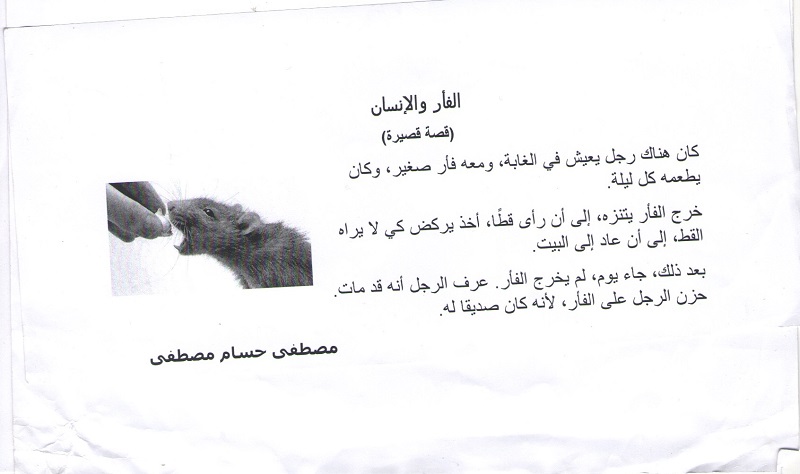 الفأر والإنسان
(قصة قصيرة)
كان هناك رجل يعيش في الغابة، ومعه فأر صغير، وكان
يطعمه كل ليلة.
خرج الفأر يتنزه، إلى أن رأى قطًا، أخذ يركض كي لا يراه
القط، إلى أن عاد إلى البيت.
بعد ذلك، جاء يوم، لم يخرج الفأر. عرف الرجل أنه قد مات.
حزن الرجل على الفأر، لأنه كان صديقا له.
مصطفى حسام مصطفى